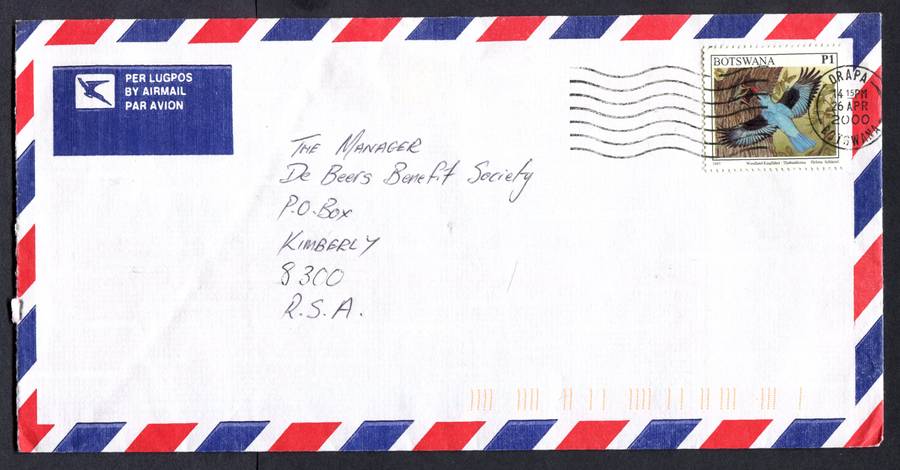 PER LUGPOS
BY AIRMAIL
PAR AVION
BOTSWANA P1
ORAPA
14 15PM
26 APR
2000
BOTSWANA
1997 Woodland Kingfisher
THE MANAGER
De Beers Benefit Society
P.O. Box
KIMBERLY
8300
R.S.A.